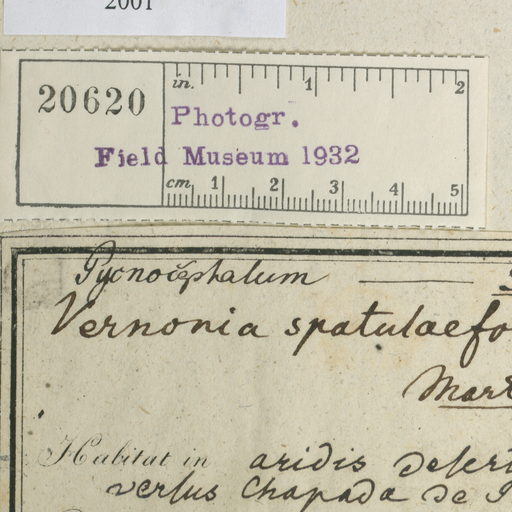 2001
20620
in. 1 2
Photogr.
Field Museum 1932
cm. 1 2 3 4 5
Pycnocephalum
Vernonia spatulaefo
Mart
Habitat in aridis desert
versus Chapada de